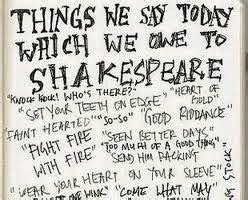 THINGS WE SAY TODAY
WHICH WE OWE TO
SHAKESPEARE
"KNOCK KNOCK! WHO'S THERE?" "HEART OF GOLD"
"SET YOUR TEETH ON EDGE"
"FAINT HEARTED" "SO-SO" "GOOD RIDDANCE"
"FIGHT FIRE WITH FIRE" "SEEN BETTER DAYS"
"TOO MUCH OF A GOOD THING"
SEND HIM PACKING
"WEAR YOUR HEART ON YOUR SLEEVE"
WINK" "COME WHAT MAY"
STOCK"